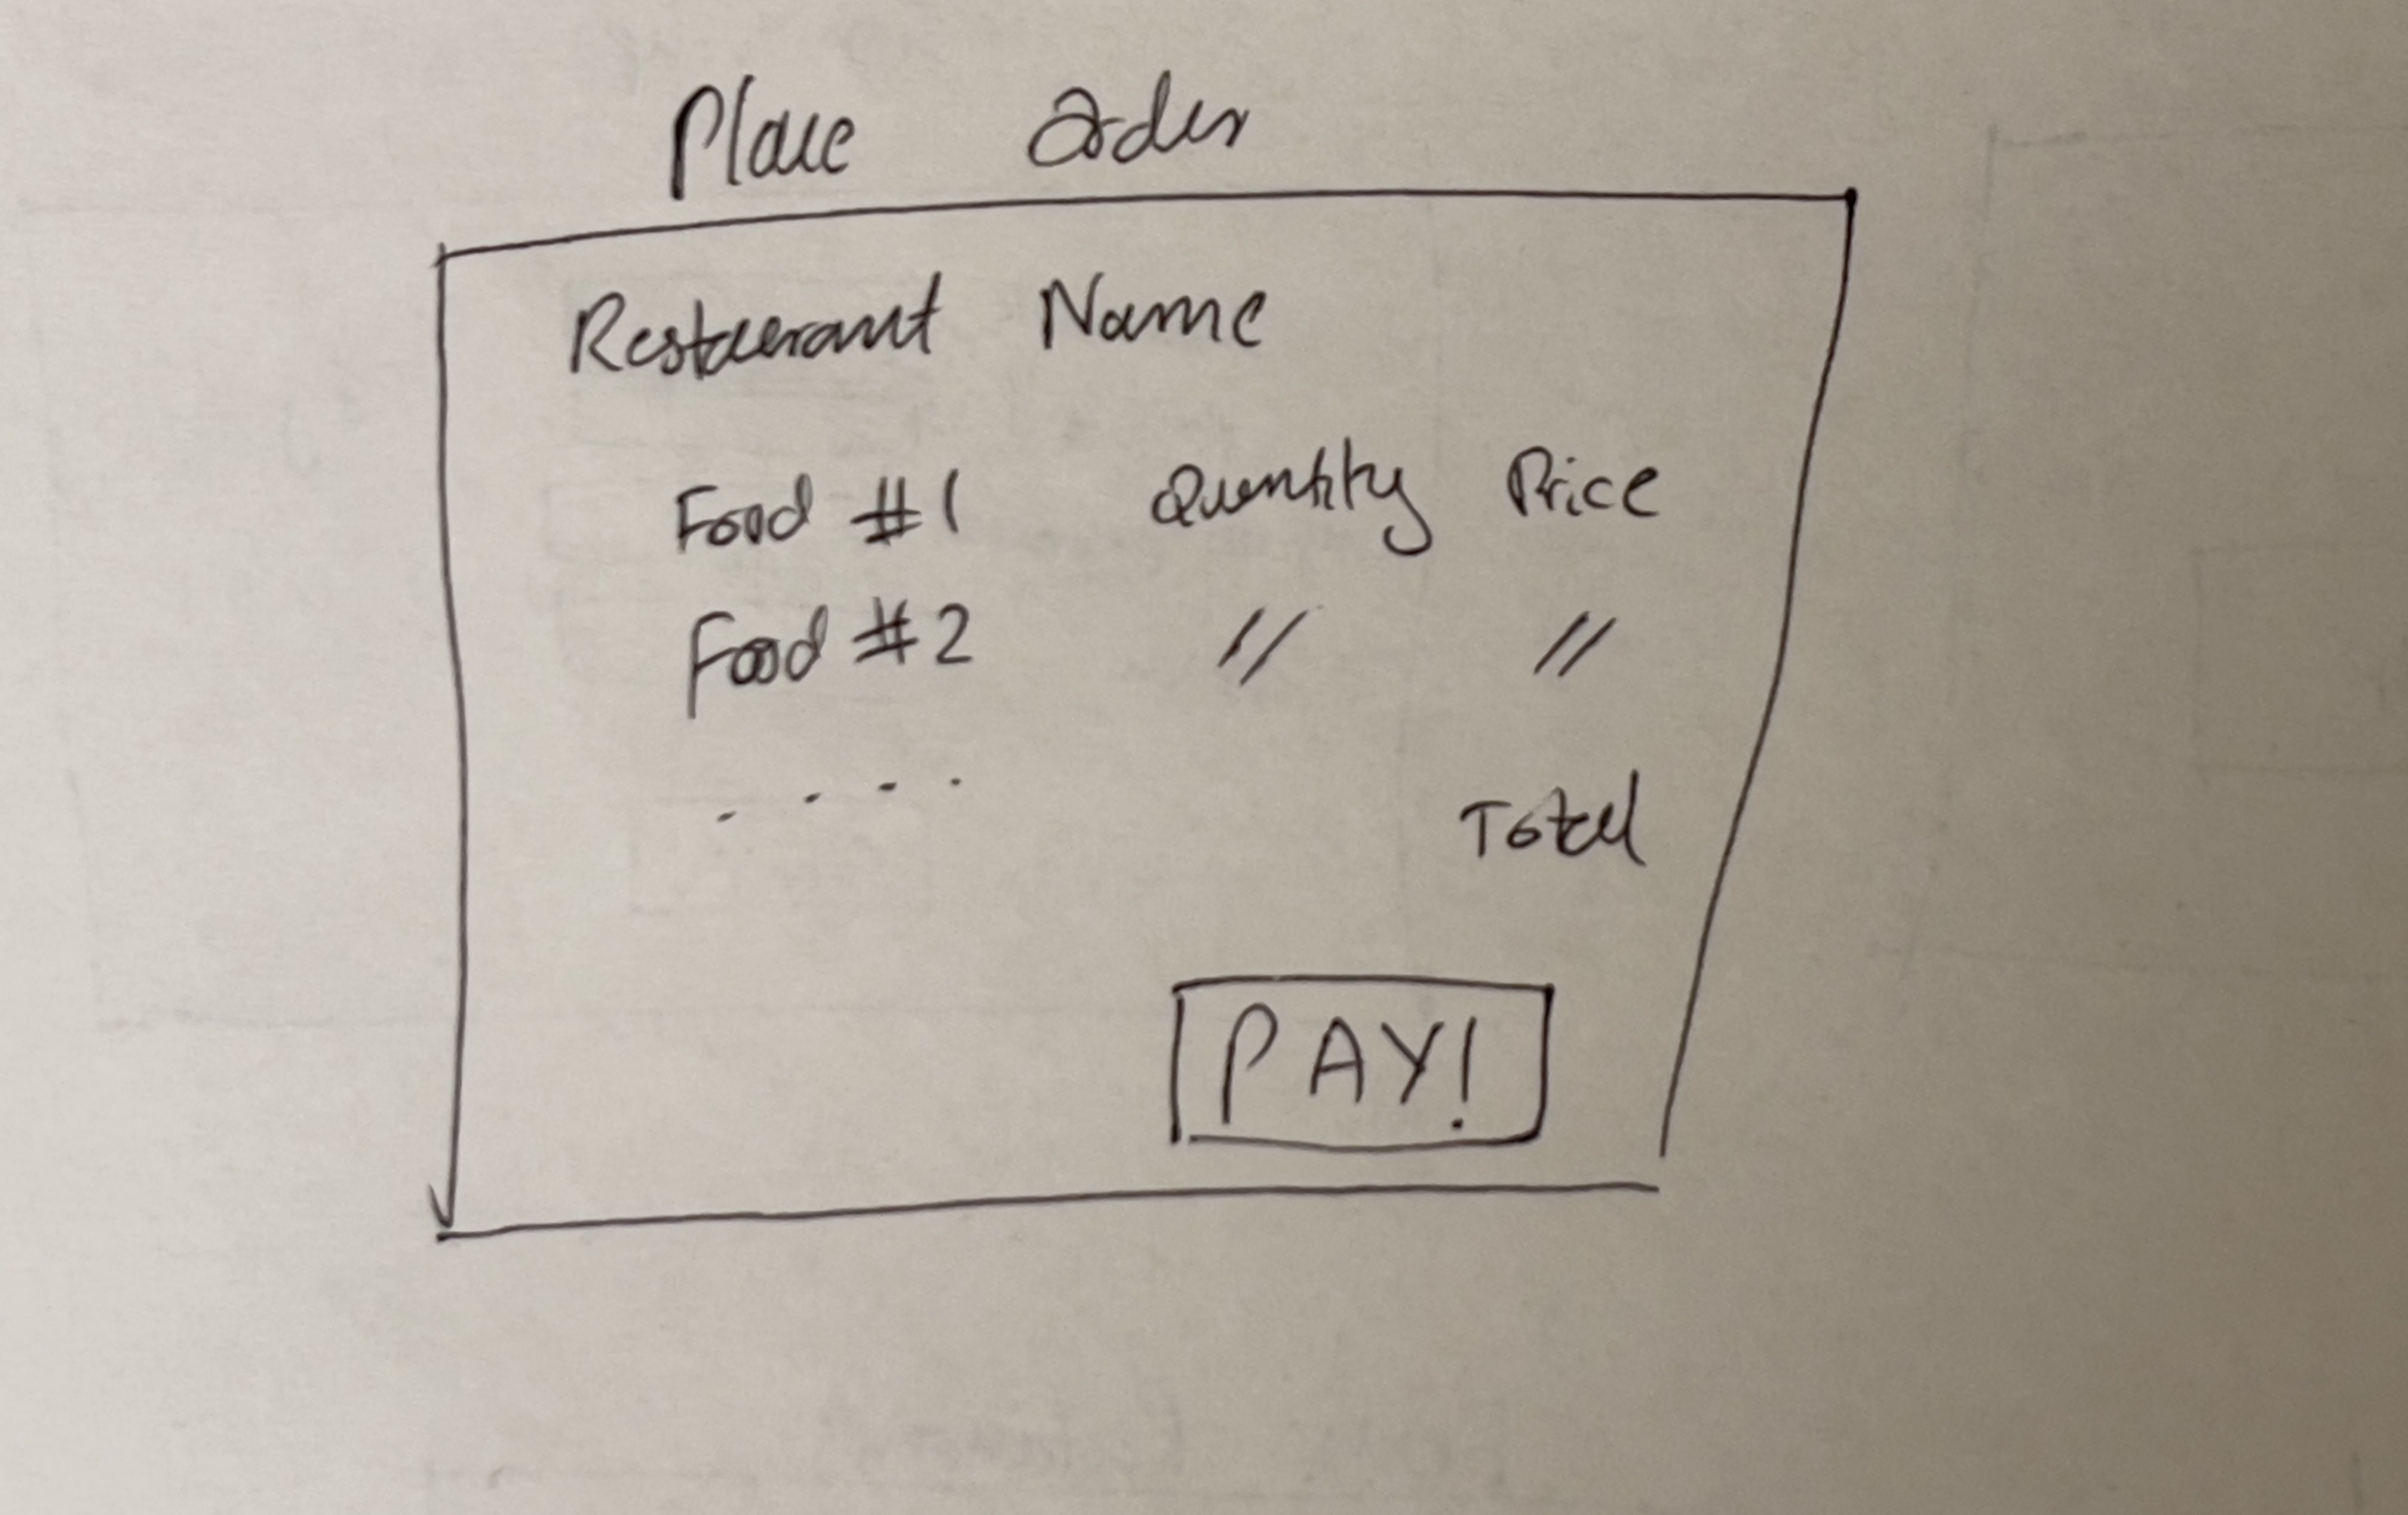 Place Order
Restaurant Name
Food #1 Quantity Price
Food #2 // //
. . . .
Total
PAY!